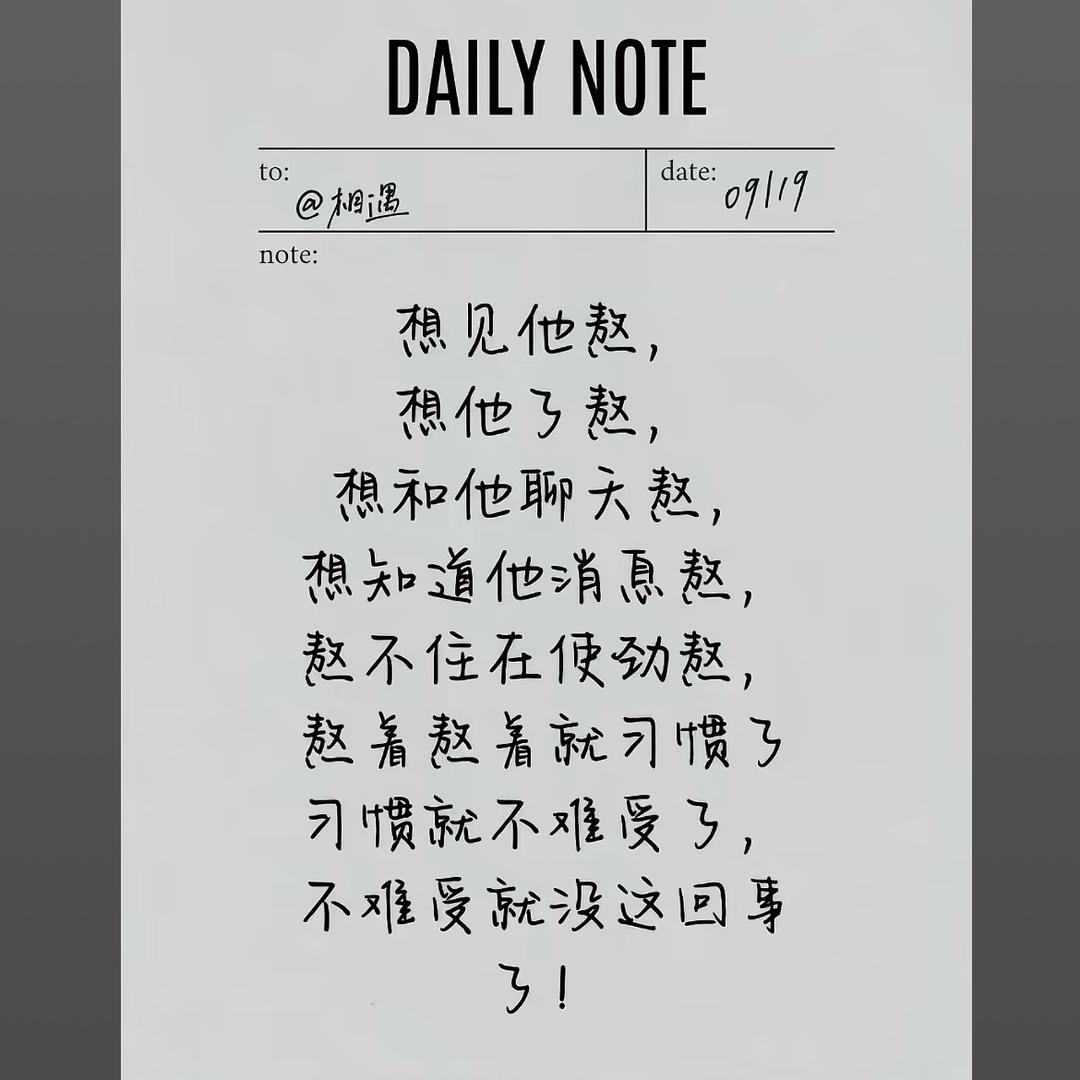 DAILY NOTE
to:
@相遇
date:
09/19
note:
想见他熬,
想他了熬,
想和他聊天熬,
想知道他消息熬,
熬不住在使劲熬,
熬着熬着就习惯了
习惯就不难受了,
不难受就没这回事
了!